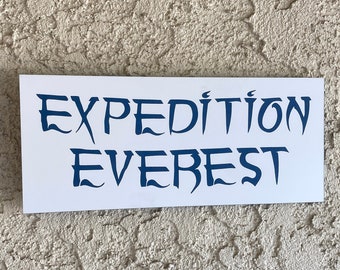 EXPEDITION
EVEREST